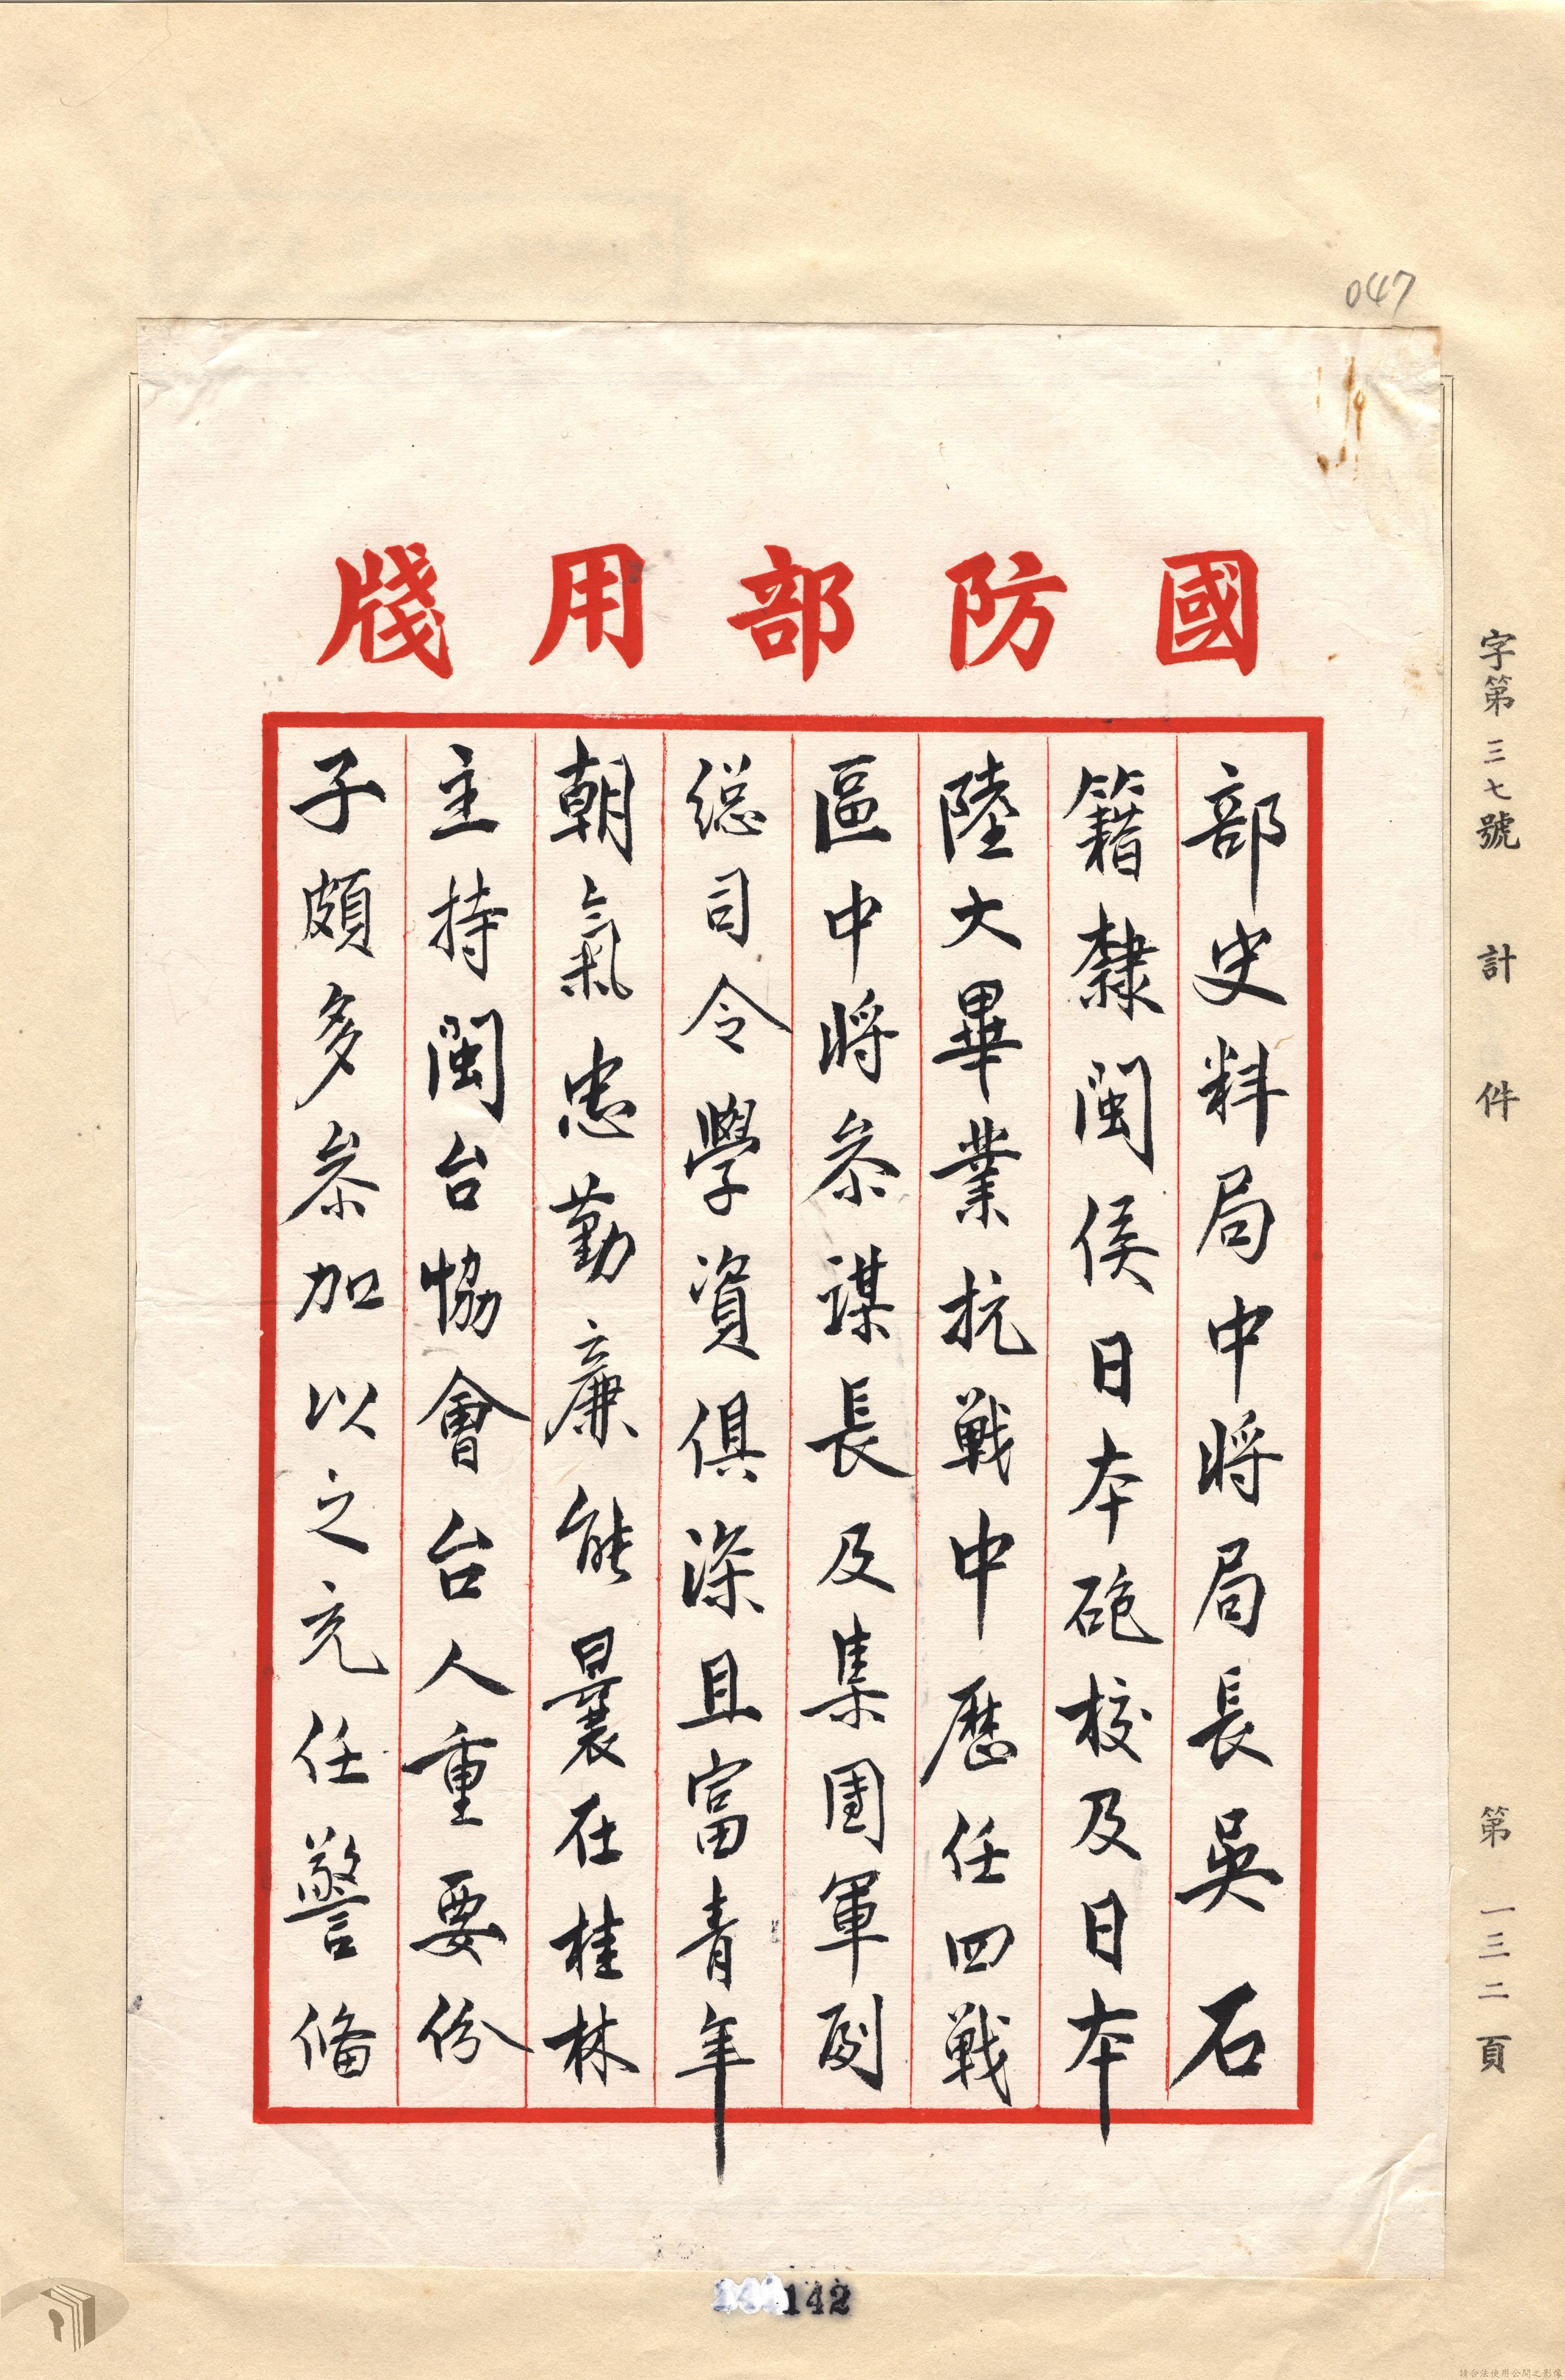 047
國防部用牋
部史料局中将局長吳石
籍隸閩侯日本砲校及日本
陸大畢業抗戰中歷任四戰
區中将参謀長及集團軍副
総司令學資俱深且富青年
朝氣忠勤廉能曩在桂林
主持閩台協會台人重要份
子頗多參加以之充任警備
字第三七號 計 件
第一三二頁
142
請合法使用公開之影像